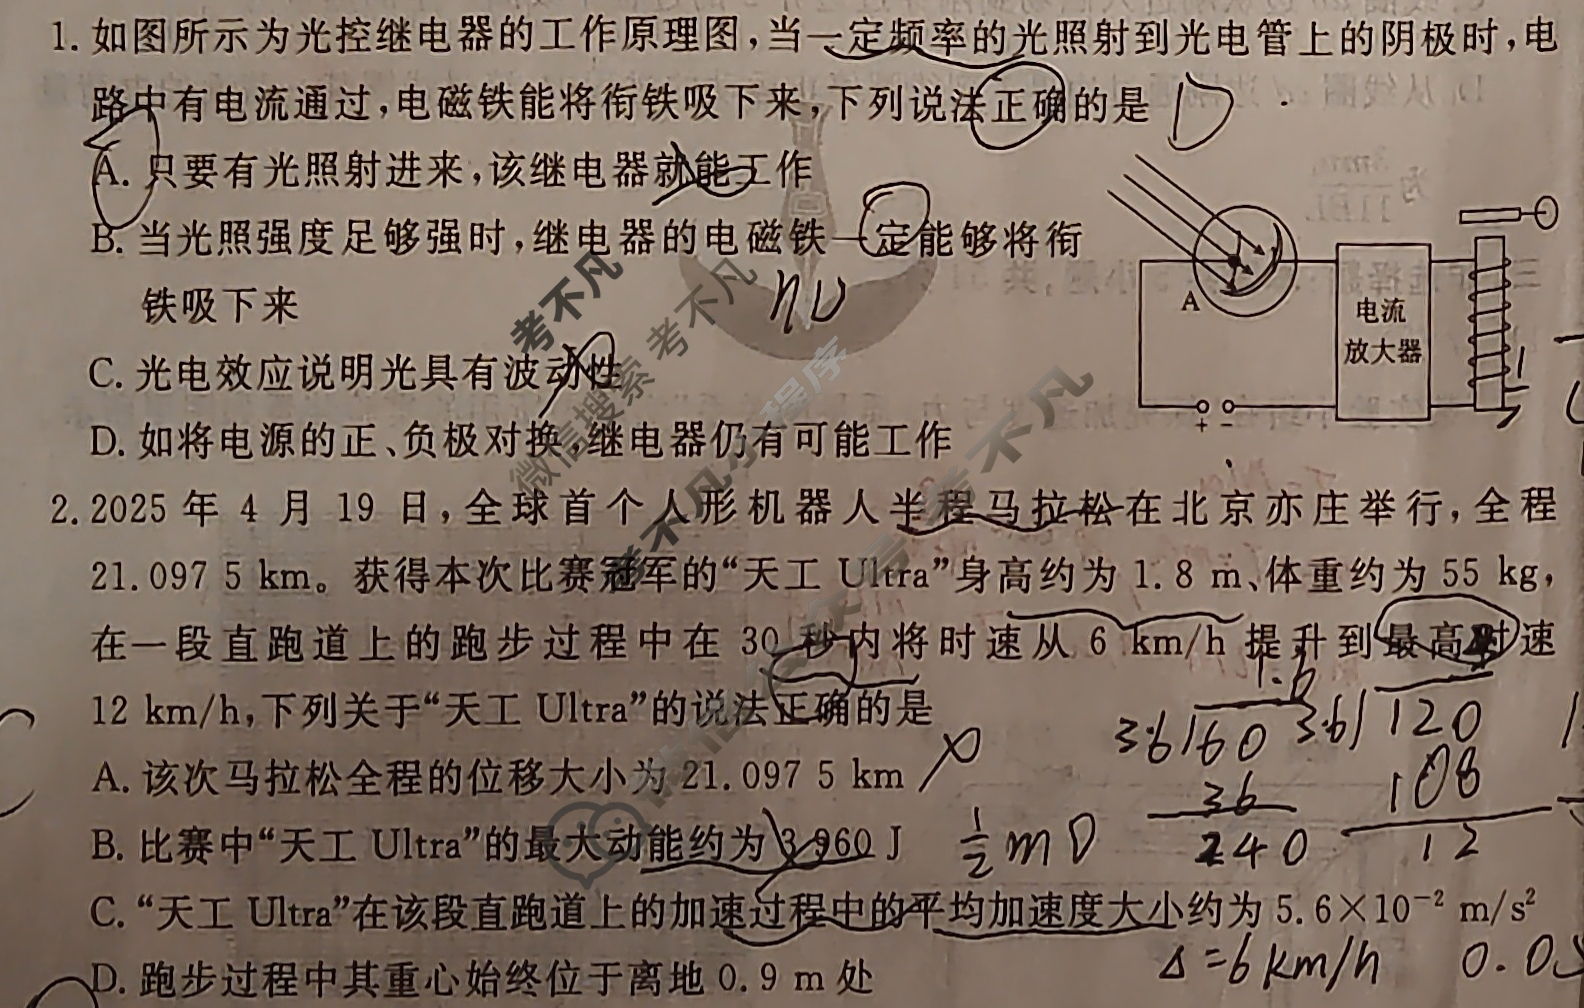 1. 如图所示为光控继电器的工作原理图，当一定频率的光照射到光电管上的阴极时，电
路中有电流通过，电磁铁能将衔铁吸下来，下列说法正确的是 D
A. 只要有光照射进来，该继电器就能工作
B. 当光照强度足够强时，继电器的电磁铁一定能够将衔
铁吸下来
C. 光电效应说明光具有波动性
D. 如将电源的正、负极对换，继电器仍有可能工作
A
电流
放大器
+ -
2. 2025 年 4 月 19 日，全球首个人形机器人半程马拉松在北京亦庄举行，全程
21.097 5 km。获得本次比赛冠军的“天工 Ultra”身高约为 1.8 m、体重约为 55 kg，
在一段直跑道上的跑步过程中在 30 秒内将时速从 6 km/h 提升到最高时速
12 km/h，下列关于“天工 Ultra”的说法正确的是
A. 该次马拉松全程的位移大小为 21.097 5 km
B. 比赛中“天工 Ultra”的最大动能约为 3 960 J
C. “天工 Ultra”在该段直跑道上的加速过程中的平均加速度大小约为 5.6×10⁻² m/s²
D. 跑步过程中其重心始终位于离地 0.9 m 处
1.6
3.6 60
36
240
3.6 120
108
12
½ m
Δ=6km/h
考不凡
微信搜索 考不凡
考不凡小程序
考不凡